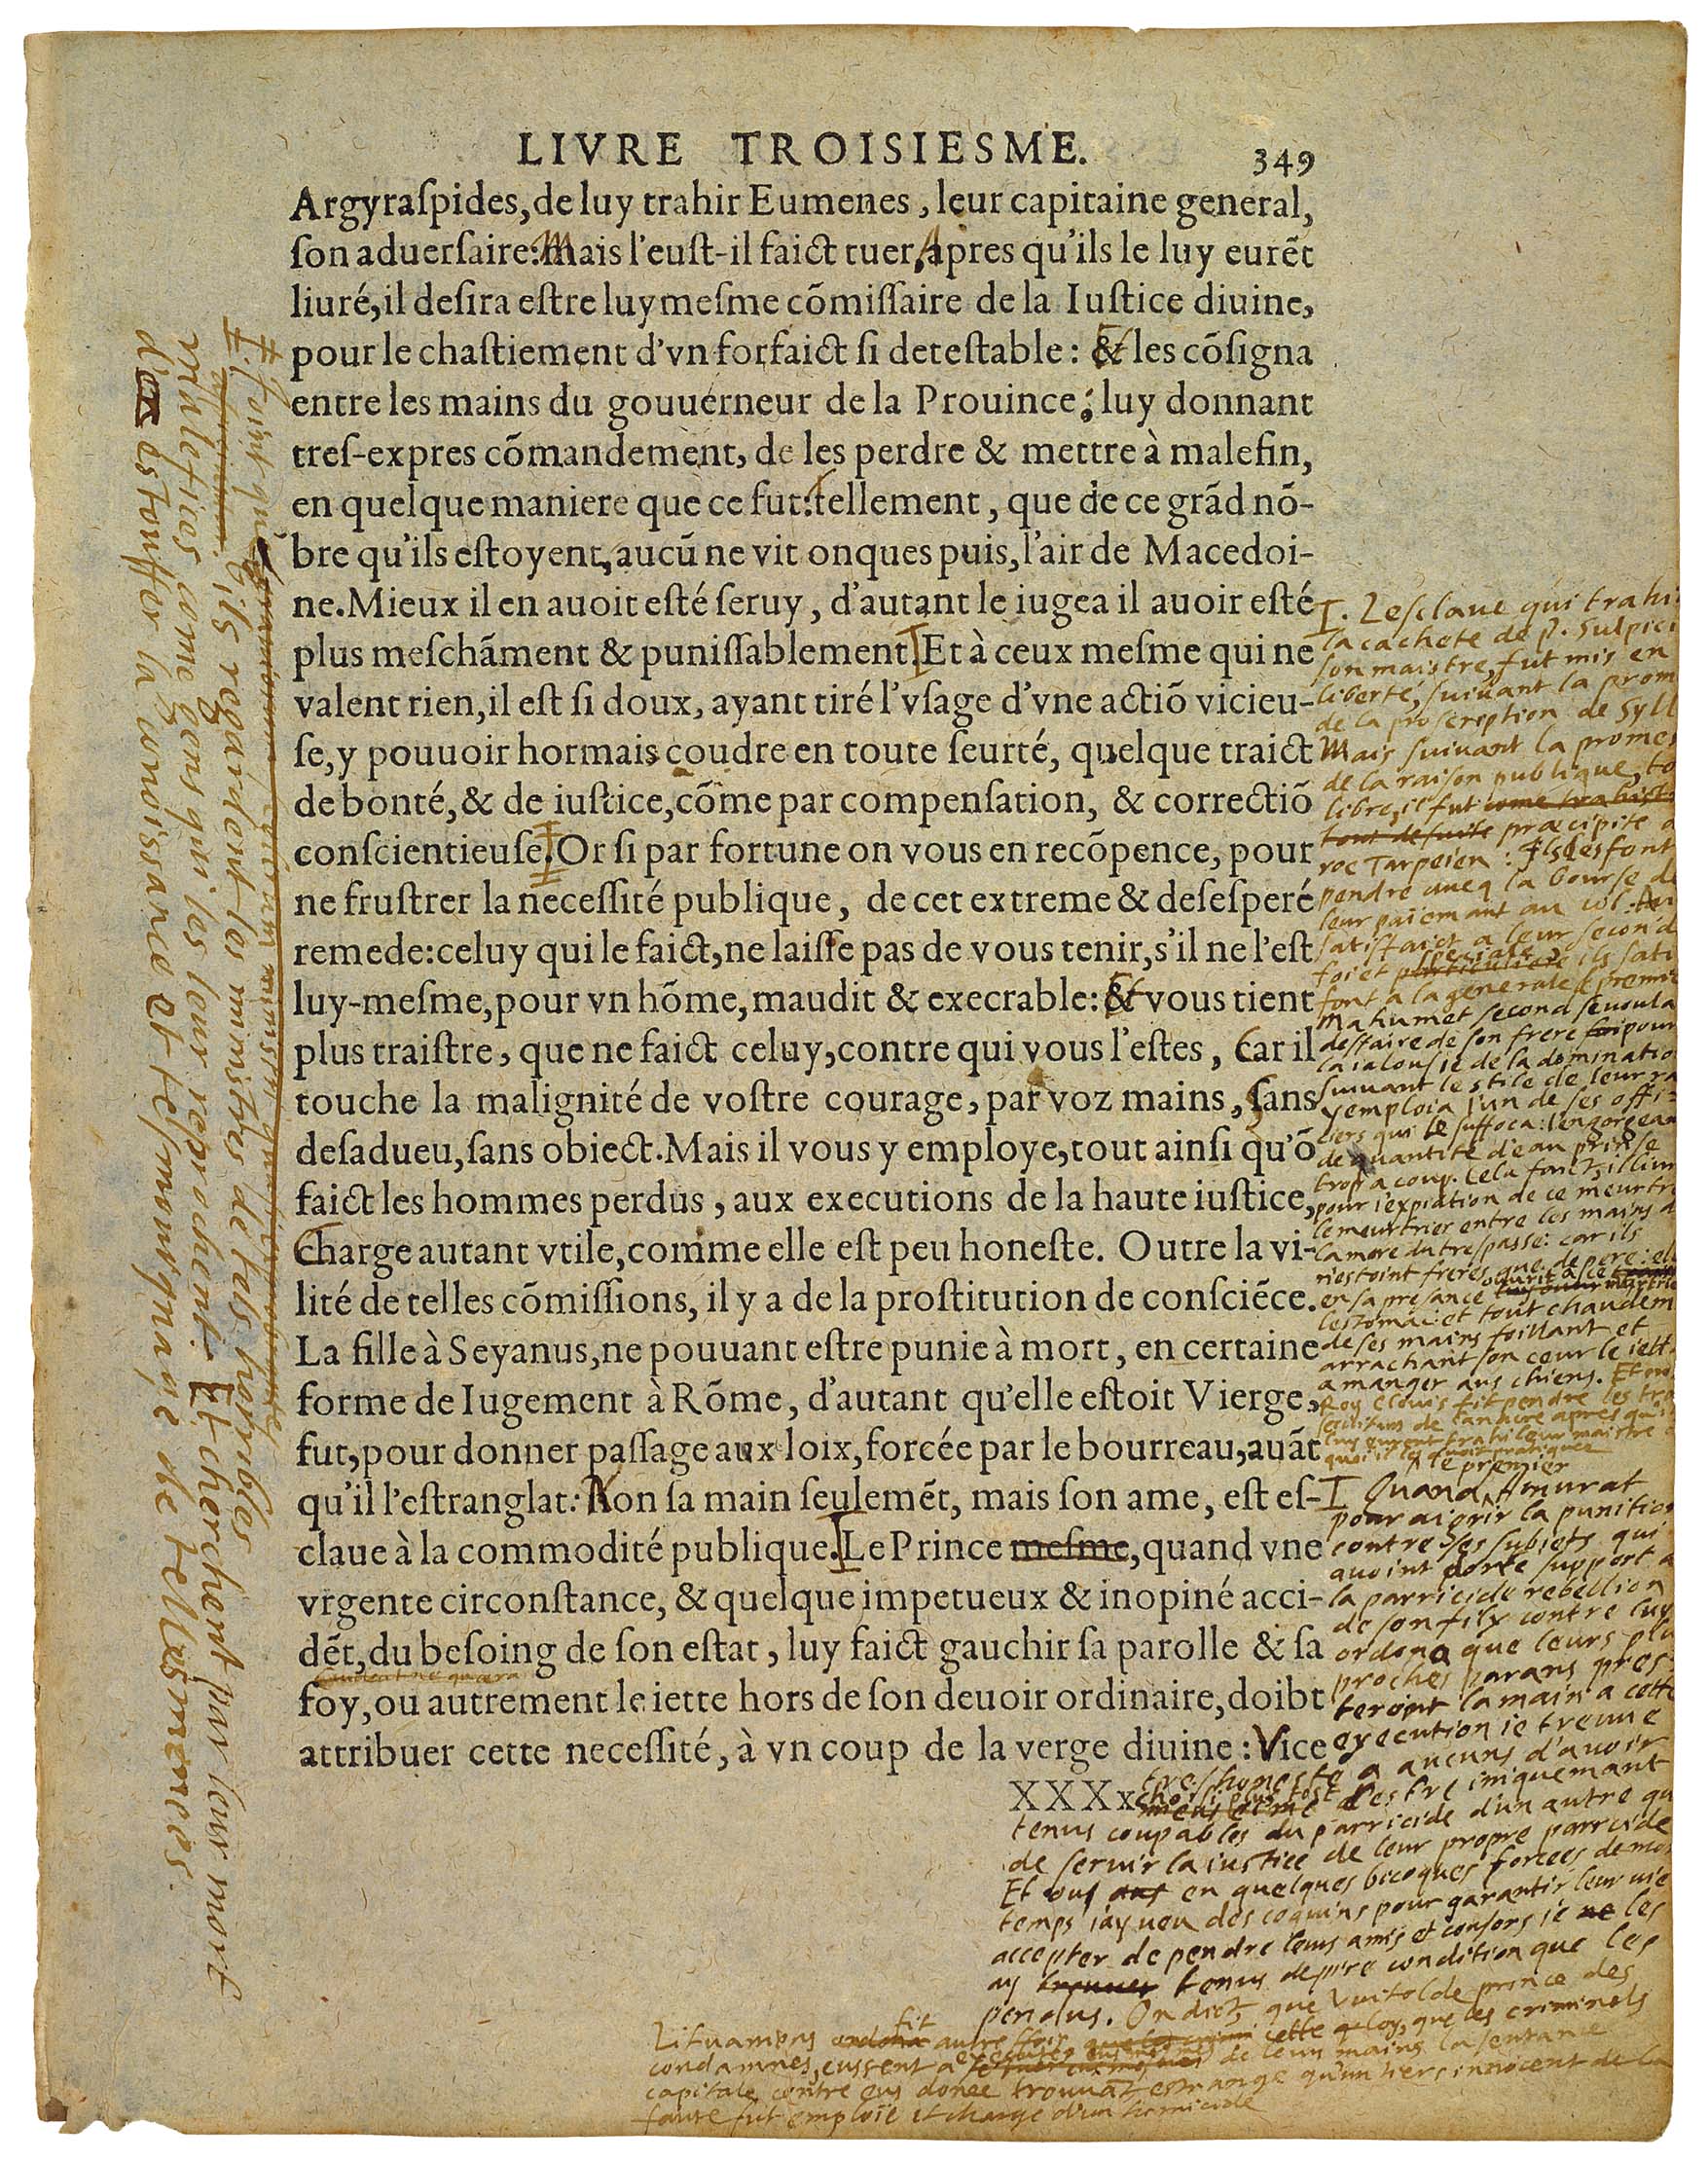 LIVRE TROISIESME. 349
Argyraſpides, de luy trahir Eumenes, leur capitaine general,
ſon aduerſaire: Mais l'euſt-il faict tuer, Apres qu'ils le luy eurẽt
liuré, il deſira eſtre luy meſme cõmiſſaire de la Iuſtice diuine,
pour le chaſtiement d'vn forfaict ſi deteſtable: Et les cõſigna
entre les mains du gouuerneur de la Prouince, luy donnant
treſ-expres cõmandement, de les perdre & mettre à malefin,
en quelque maniere que ce fut: tellement, que de ce grãd nõ-
bre qu'ils eſtoyent, aucũ ne vit onques puis, l'air de Macedoi-
ne. Mieux il en auoit eſté ſeruy, d'autant le iugea il auoir eſté
plus meſchãment & puniſſablement. Et à ceux meſme qui ne
valent rien, il eſt ſi doux, ayant tiré l'vſage d'vne actiõ vicieu-
ſe, y pouuoir hormais coudre en toute ſeurté, quelque traict
de bonté, & de iuſtice, cõme par compenſation, & correctiõ
conſcientieuſe. Or ſi par fortune on vous en recõpence, pour
ne fruſtrer la neceſſité publique, de cet extreme & deſeſperé
remede: celuy qui le faict, ne laiſſe pas de vous tenir, s'il ne l'eſt
luy-meſme, pour vn hõme, maudit & execrable: Et vous tient
plus traiſtre, que ne faict celuy, contre qui vous l'eſtes, Car il
touche la malignité de voſtre courage, par voz mains, ſans
deſadueu, ſans obiect. Mais il vous y employe, tout ainſi qu'õ
faict les hommes perdus, aux executions de la haute iuſtice,
Charge autant vtile, comme elle eſt peu honeſte. Outre la vi-
lité de telles cõmiſſions, il y a de la proſtitution de conſciẽce.
La fille à Seyanus, ne pouuant eſtre punie à mort, en certaine
forme de Iugement à Rõme, d'autant qu'elle eſtoit Vierge,
fut, pour donner paſſage aux loix, forcée par le bourreau, auãt
qu'il l'eſtranglat: Non ſa main ſeulemẽt, mais ſon ame, eſt eſ-
claue à la commodité publique. Le Prince meſme, quand vne
vrgente circonſtance, & quelque impetueux & inopiné acci-
dẽt, du beſoing de ſon eſtat, luy faict gauchir ſa parolle & ſa
foy, ou autrement le iette hors de ſon deuoir ordinaire, doibt
attribuer cette neceſſité, à vn coup de la verge diuine: Vice
XXXx
I. Lesclaue qui trahi
la cachete de P. Sulpici
son maistre, fut mis en
liberté, suiuant la prom
de la proscription de Syll
Mais suiuant la promes
de la raison publique, to
libre, il fut come
tout de suite præcipite
roc Tarpeien: Ils les font
pendre aueq la bourse de
leur paiemant au col:
satisfaict a leur second
foi et particuliere speciale ils sati
font a la generale & premie
Mahumet second se voula
deffaire de son frere pour
la ialousie de la dominatio
suiuant le stile de leur ra
y emploia l'un de ses offi-
ciers qui le suffoca: l'engorgean
de quantite d'eau prinse
trop a coup. Cela faict, il liura
pour l'expiation de ce meurtre
le meurtrier entre les mains d
la mere du trespassé: car ils
n'estoint freres que de pere: el
en sa presance ouurit a ce
lestomac: et tout chaudem
de ses mains foillant et
arrachant son ceur le iett
a manger aus chiens. Et
Roy Clouis fit pendre les
de Canacre apres qu'
trahi leur maistre
I Quand Amurat le premier
pour aigrir la punition
contre ses subiets qui
auoint porté support a
la parricide rebellion
de son fily contre luy
ordona que leurs plu
proches parans pres-
teroint la main a cette
execution ie treuue
treshoneste a aucuns d'auoir
choisi plus tost d'estre iniquemant
tenus coupables du parricide d'un autre qu
de seruir la iustice de leur propre parricide
Et ou en quelques bicoques forcees de mon
temps i'ay veu des coquins pour garantir leur vie
accepter de pendre leurs amis et consors ie ne les
ay trouuez tenus de pire condition que les
pendus. On dict que Vuitolde prince des
Lituaniens ordona fit autresfois cette loy, que les criminels
condamnes, eussent a executer eus mesmes de leurs mains la sentance
capitale contre eus donee trouuãt estrange qu'un tiers innocent de la
faute fut emploié et chargé d'un homicide
ils regardent les ministres de tels horribles
malefices come gens qui les leur reprochent. Et cherchent par leur mort
d'estouffer la conoissance et tesmouignage de tels